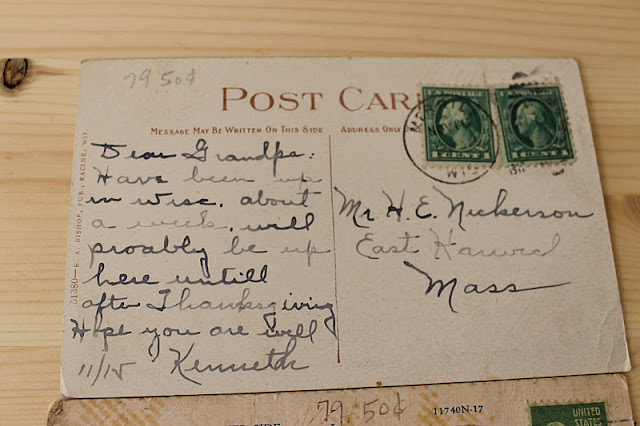 79 50¢
POST CAR
MESSAGE MAY BE WRITTEN ON THIS SIDE
ADDRESS ONLY ON
Dear Grandpa:
Have been up
in Wisc. about
a week, will
proably be up
here untill
after Thanksgiving
Hope you are well
11/15 Kenneth
Mr H. E. Nickerson
East Harwich
Mass
51380—E. A. BISHOP, PUB., RACINE, WIS.
U.S. POSTAGE
CENTS
WIS
79 50¢
11740N-17
UNITED
STATES